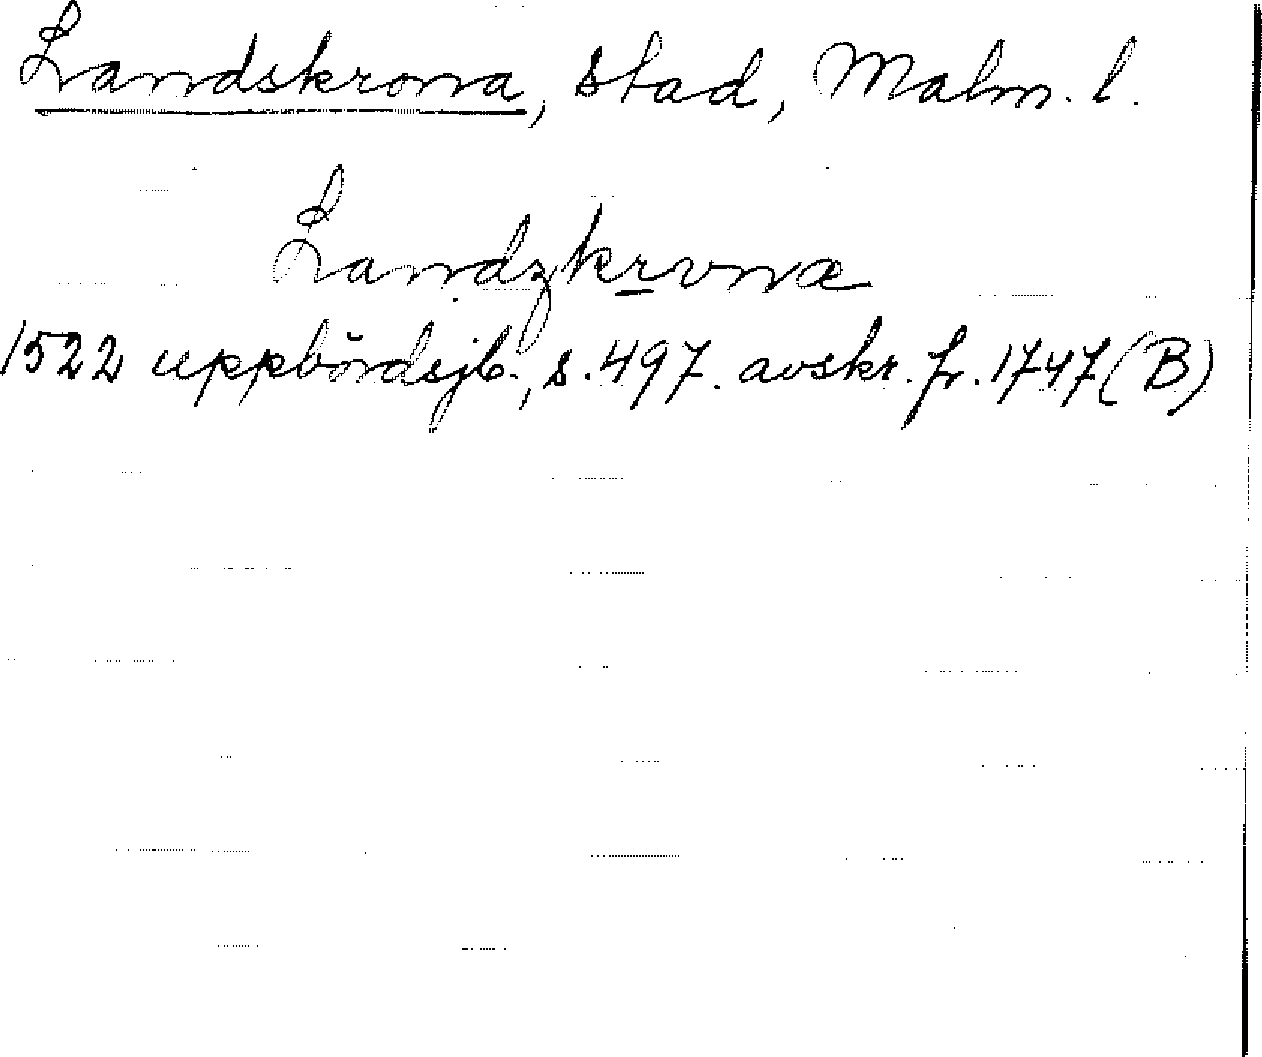 Landskrona, stad, Malm. l.
Landzkrvnæ
1522 uppbördsjb., s. 497. avskr. fr. 1747 (B)